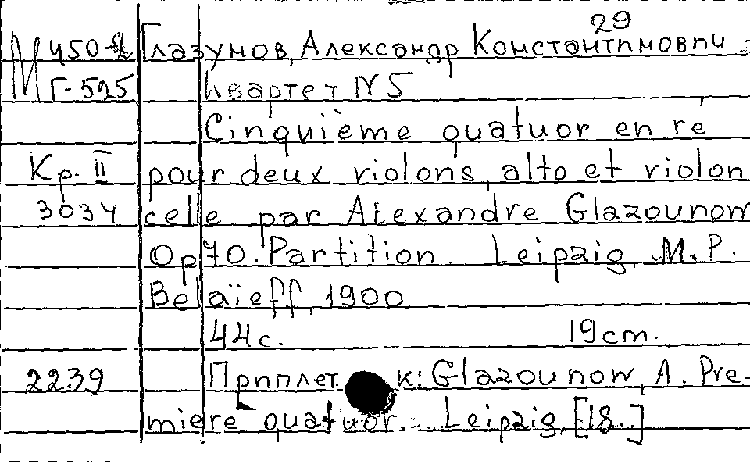 29
М 450 Глазунов, Александр Константинович
Г-525 Квартет N 5
Cinquième quatuor en ré
Кр. II pour deux violons, alto et violon
3034 celle par Alexandre Glazounow
Op 70. Partition. Leipzig, M. P.
Belaïeff, 1900
44 с. 19 cm.
2239 Приплет. к: Glazounow, A. Pre-
miere quatuor. Leipzig, [18..]